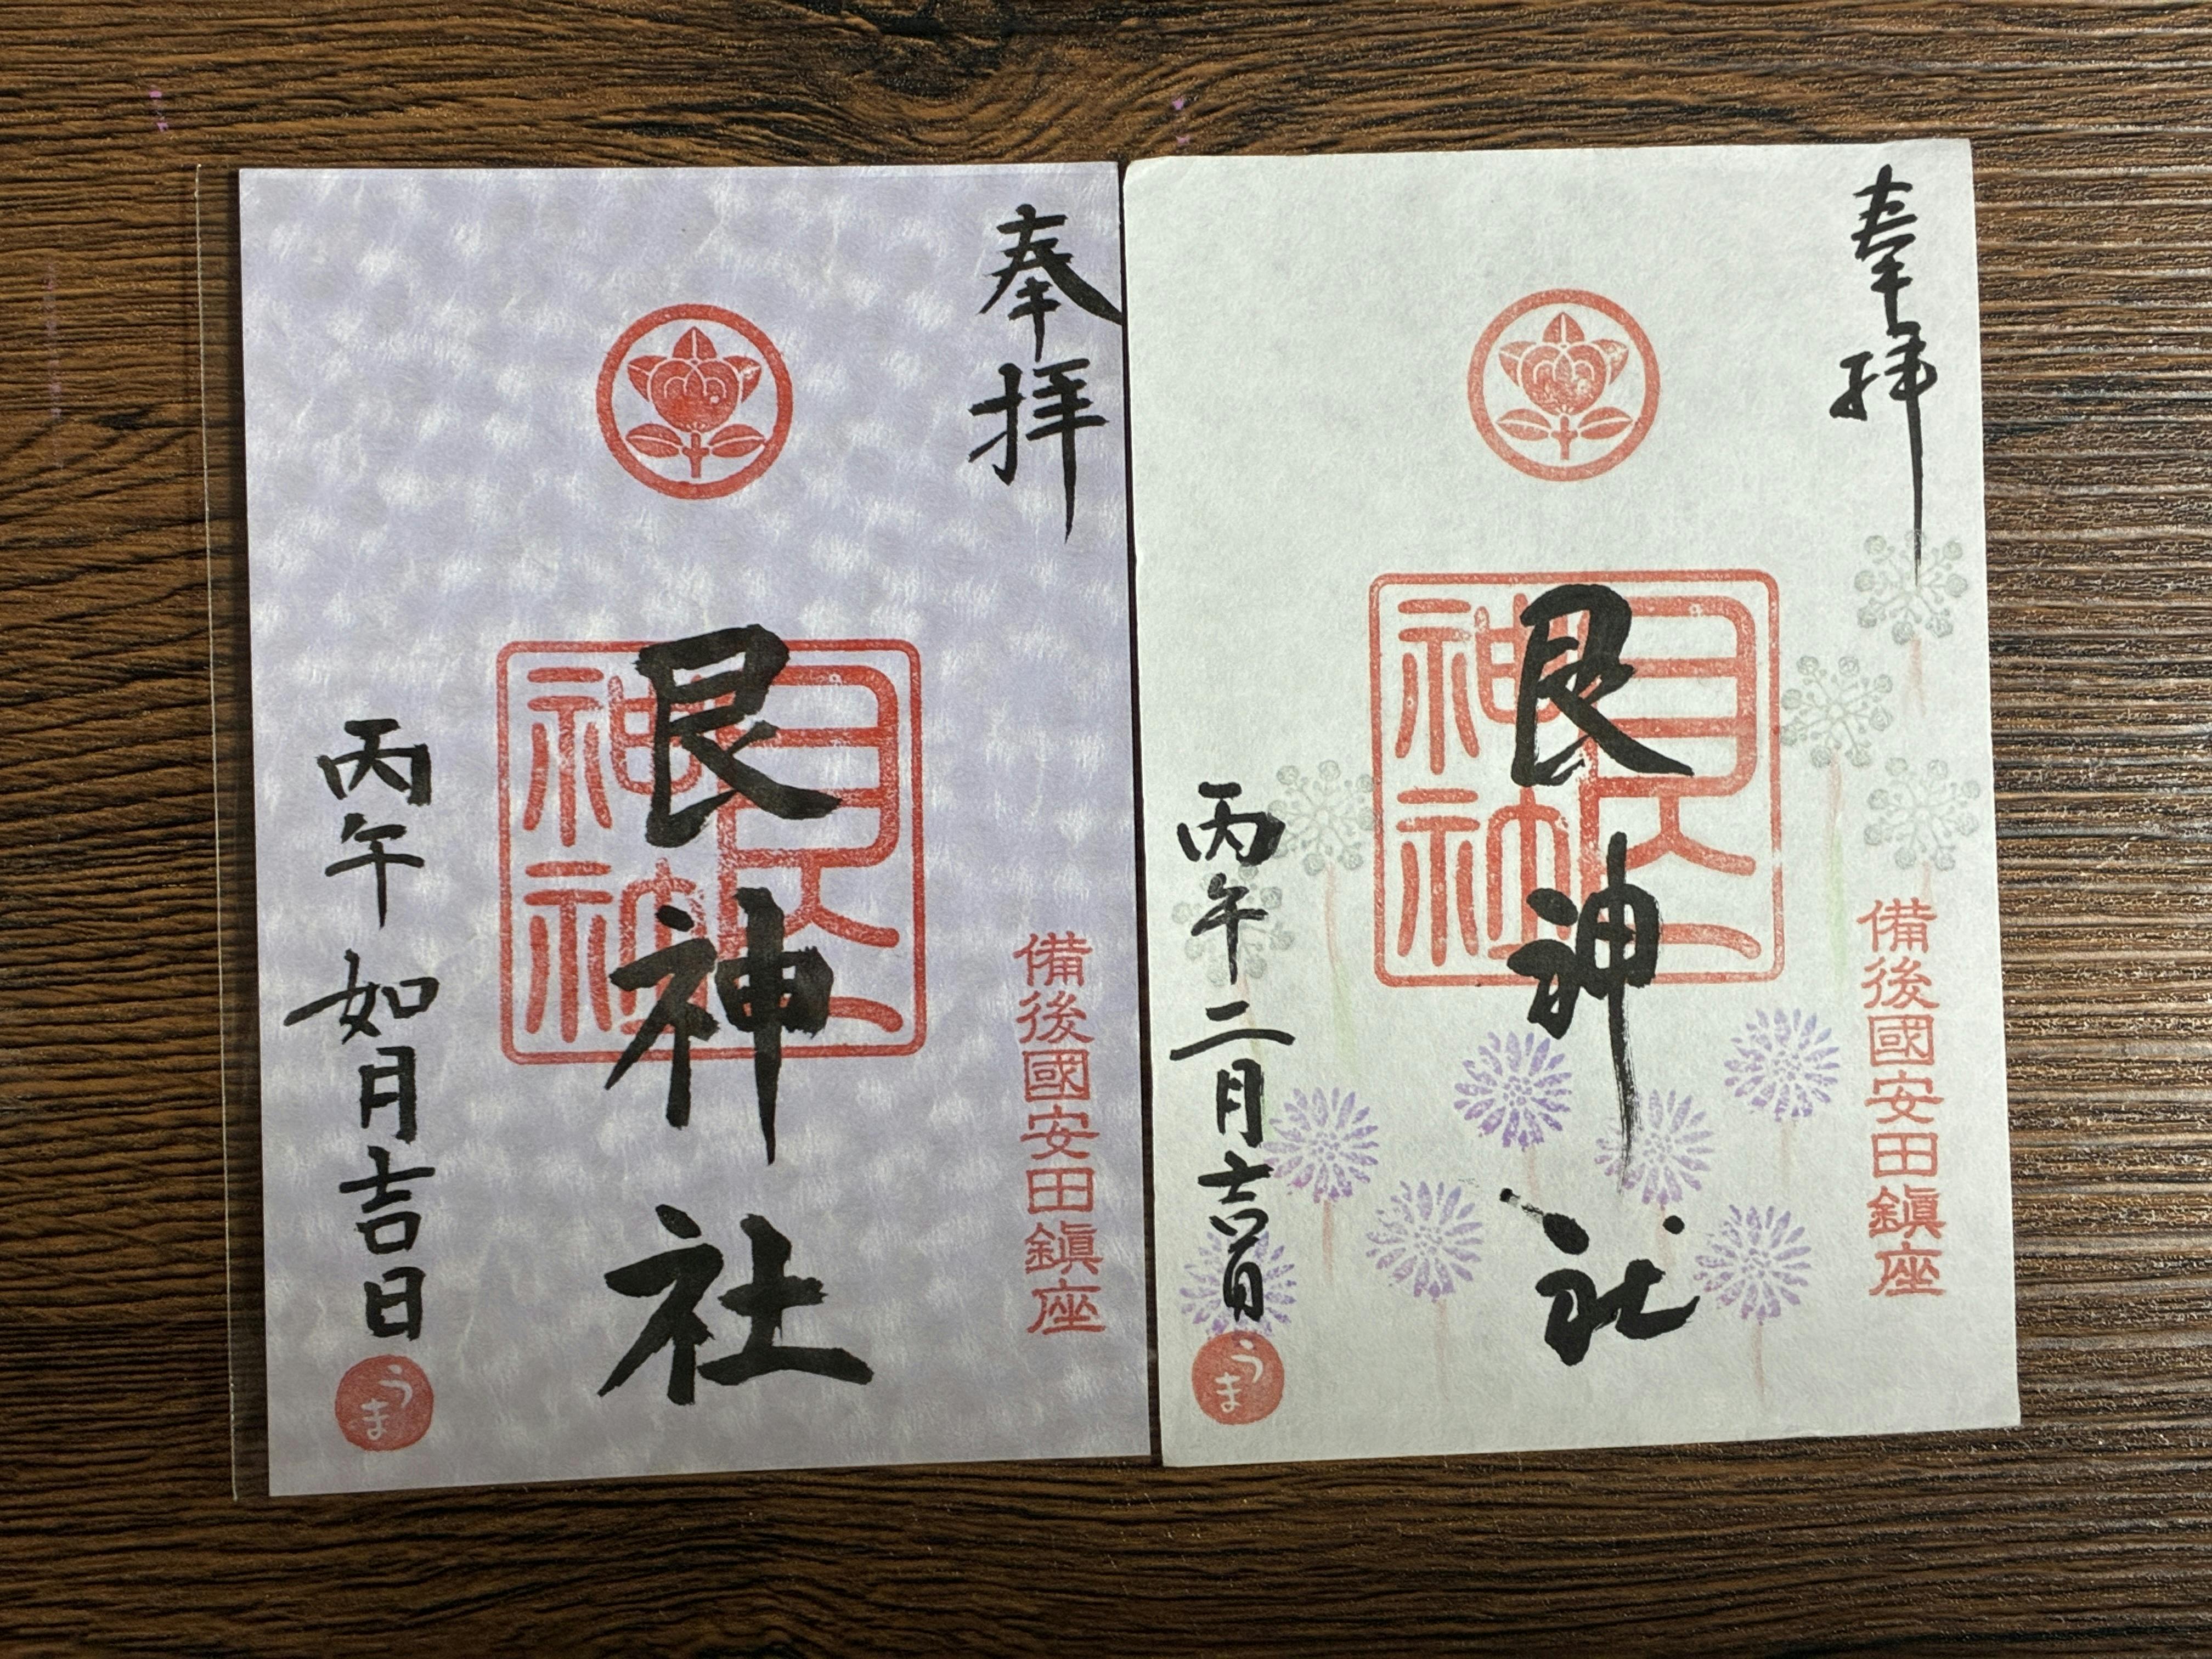 奉拝
艮神社
艮神社
備後國安田鎭座
丙午如月吉日
うま
奉拝
艮神社
艮神社
備後國安田鎭座
丙午二月吉日
うま